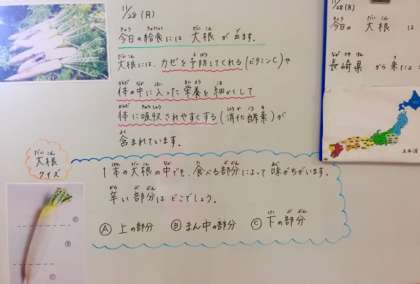 11/28(月)
今日の給食には 大根 が 出ます。
大根には、カゼを予防してくれる(ビタミンC)や
体の中に入った栄養を細かくして
体に吸収されやすくする(消化酵素)が
含まれています。
大根
クイズ
1本の大根の中でも、食べる部分によって味がちがいます。
辛い部分はどこでしょう。
Ⓐ 上の部分 Ⓑ まん中の部分 Ⓒ 下の部分
Ⓐ
Ⓑ
Ⓒ
11/28(月)
今日の 大根 は
長崎県 から 来